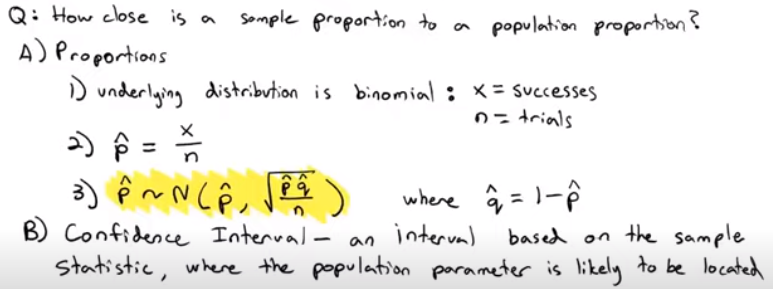 Q: How close is a sample proportion to a population proportion?
A) Proportions
1) underlying distribution is binomial : x = successes
n = trials
2) p̂ = x/n
3) p̂ ~ N(p̂, √(p̂q̂/n)) where q̂ = 1-p̂
B) Confidence Interval - an interval based on the sample
statistic, where the population parameter is likely to be located